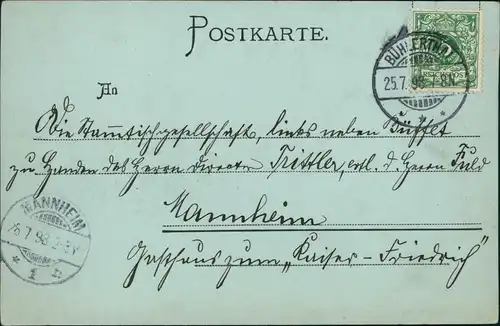 POSTKARTE.
BÜHLERTHAL
25.7.98
REICHSPOST
An
Die Stammtischgesellschaft, links neben Büffet
zu Handen des Herrn Direktor Trittler, evtl. d. Herrn Fuld
Mannheim
Gasthaus zum „Kaiser-Friedrich"
MANNHEIM
26.7.98
1